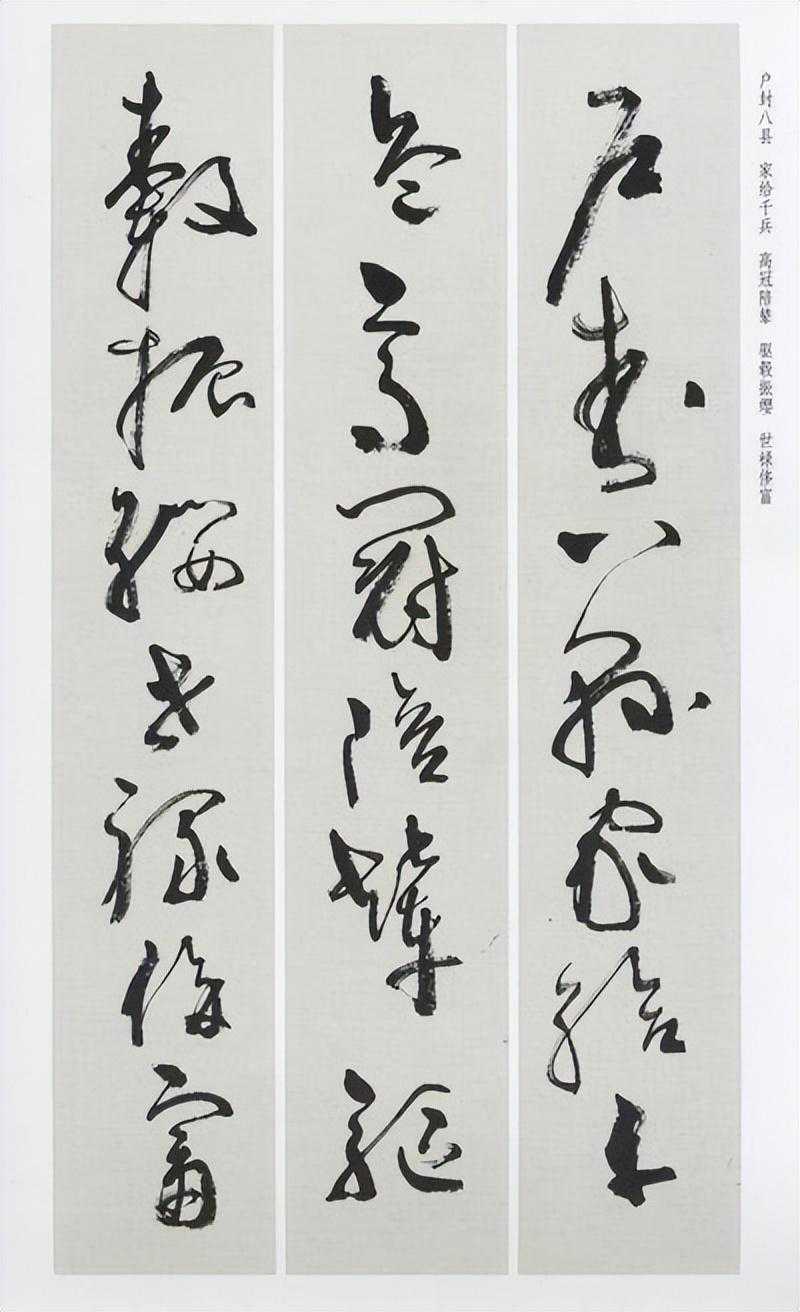 户封八县 家给千兵 高冠陪辇 驱毂振缨 世禄侈富
户封八縣家給千
兵高冠陪輦驅
轂振纓世祿侈富